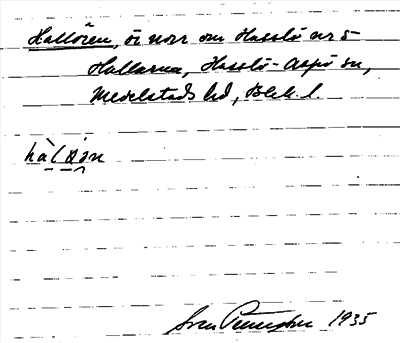 Hallören, ö norr om Hasslö nr 5
Hallarna, Hasslö-Aspö sn,
Medelstads hd, Blek. l.
hàl
Sven 1935